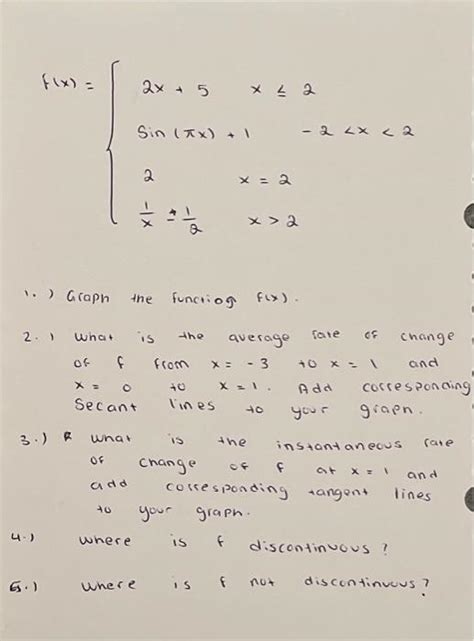 f(x) = { 2x + 5 x ≤ 2
sin (πx) + 1 - 2 < x < 2
2 x = 2
1/x ± 1/2 x > 2
1.) Graph the function f(x).
2.) What is the average rate of change
of f from x = -3 to x = 1 and
x = 0 to x = 1. Add corresponding
Secant lines to your graph.
3.) What is the instantaneous rate
of change of f at x = 1 and
add corresponding tangent lines
to your graph.
4.) where is f discontinuous?
5.) where is f not discontinuous?